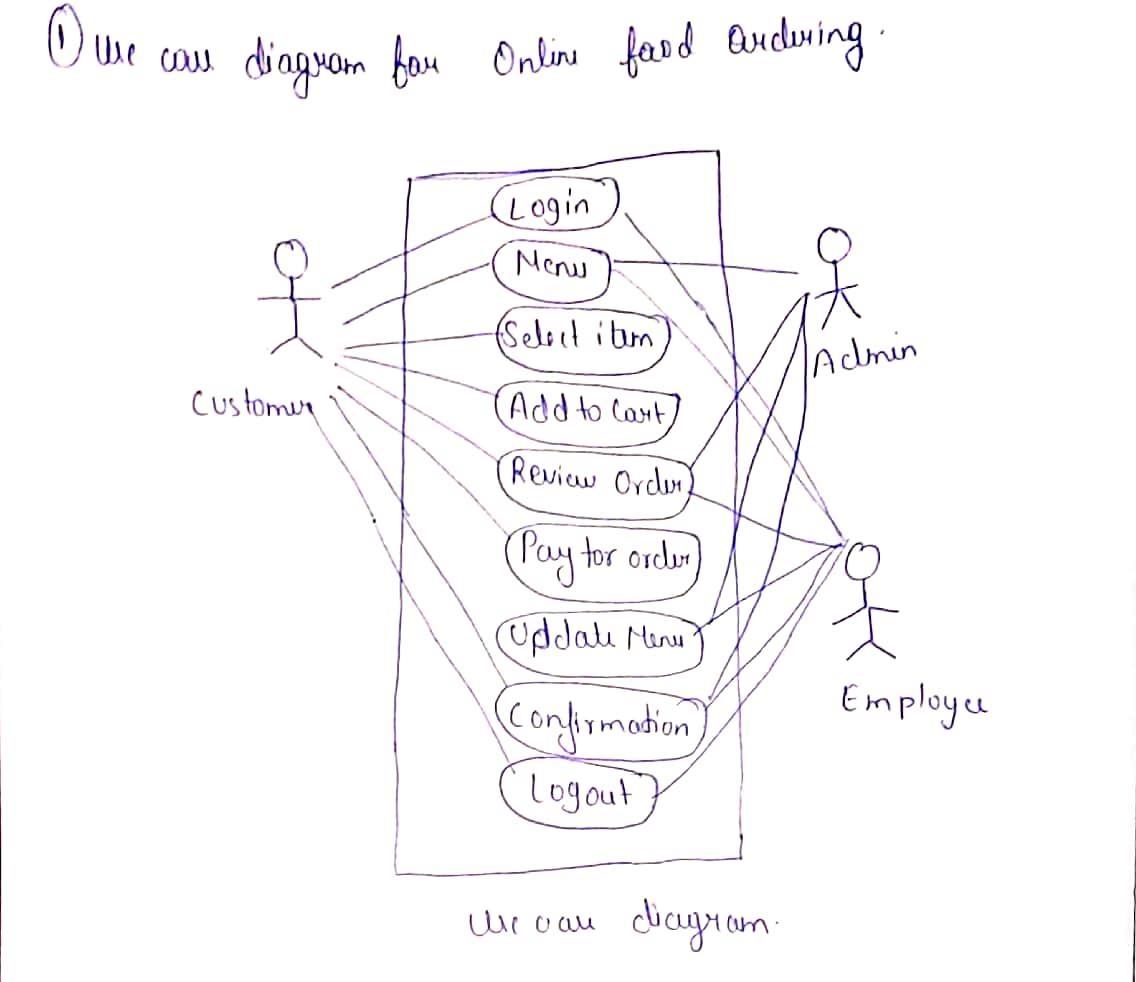 ① Use case diagram for Online food ordering.
Login
Menu
Select item
Admin
Customer
Add to Cart
Review Order
Pay for order
Update Menu
Employee
Confirmation
Logout
Use case diagram.